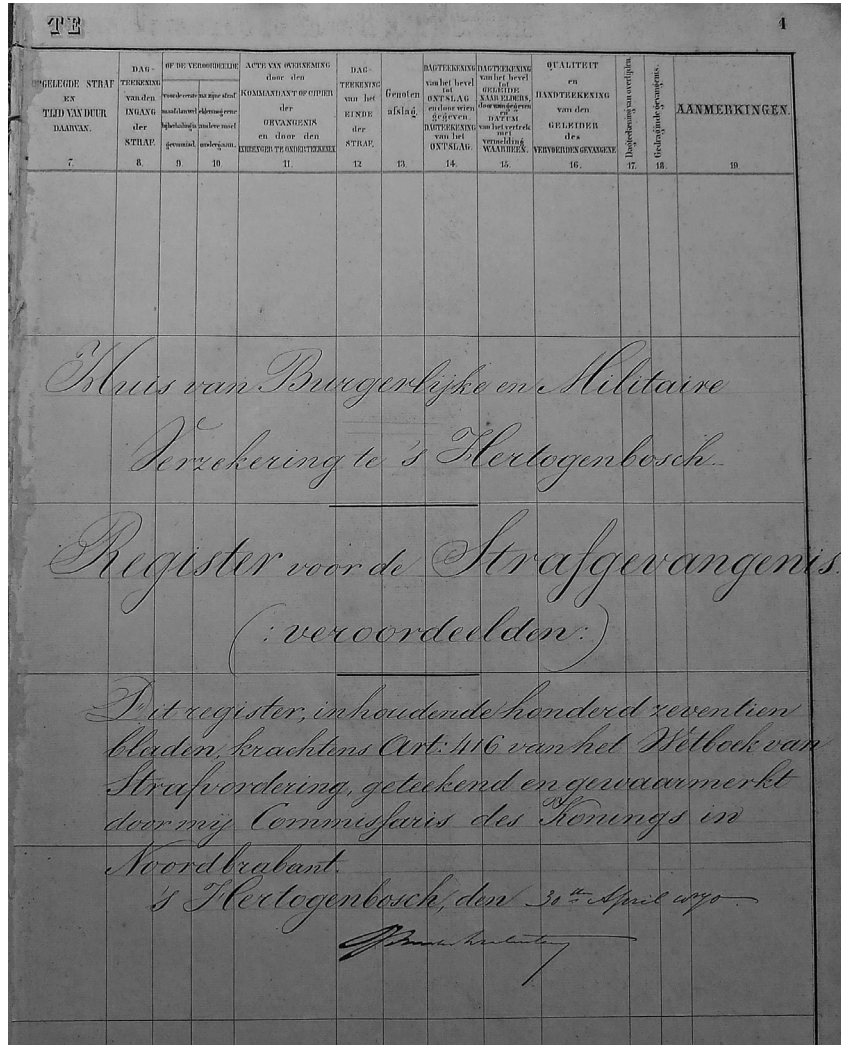 TE
1
OPGELEGDE STRAF
EN
TIJD VAN DUUR
DAARVAN.
7.
DAG-
TEEKENING
van den
INGANG
der
STRAF.
8.
OF DE VEROORDEELDE
9.
10
ACTE VAN OVERNEMING
door den
KOMMANDANT OF CIPIER
der
GEVANGENIS
en door den
OVERBRENGER TE ONDERTEEKENEN
11.
DAG-
TEEKENING
van het
EINDE
der
STRAF.
12
Genoten
afslag.
13.
DAGTEEKENING
van het bevel
tot
ONTSLAG
en door wien
gegeven.
DAGTEEKENING
van het
ONTSLAG.
14.
DAGTEEKENING
van het bevel
tot
GELEIDE
NAAR ELDERS,
door wien gegeven
en
DATUM
van het vertrek
met
vermelding
WAARHEEN.
15.
QUALITEIT
en
HANDTEEKENING
van den
GELEIDER
des
VERVOERDEN GEVANGENE
16.
Dagteekening van overlijden.
17.
Gedrag in de gevangenis.
18.
AANMERKINGEN.
19.
Huis van Burgerlijke en Militaire
Verzekering te 's Hertogenbosch
Register voor de Strafgevangenis.
(: veroordeelden:)
Dit register, inhoudende honderd zeventien
bladen, krachtens Art: 416 van het Wetboek van
Strafvordering, geteekend en gewaarmerkt
door mij Commissaris des Konings in
Noordbrabant.
's Hertogenbosch, den 30sten April 1870